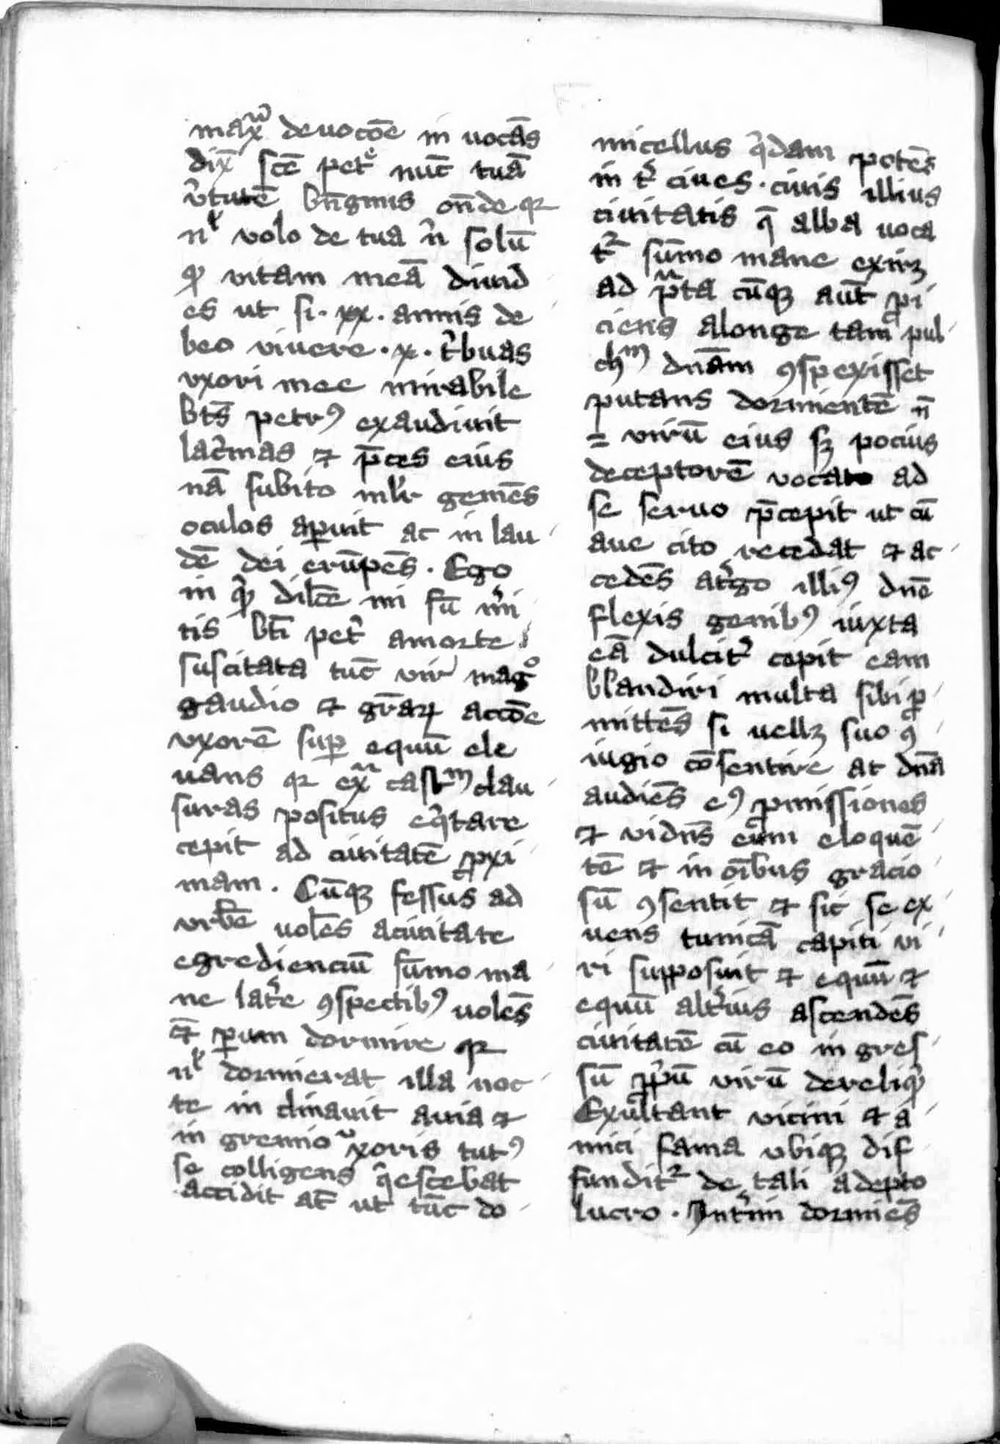 maxͣ deuocōe in vocās
dix̄ sc̄e petͤ nūc tuā
v̾tutē bn̄gnus on̄de qr
nͪ volo de tua n̄ solū
qͦ vitam meā diuid
es ut si · xx · annis de
beo viuere · x · t̾buas
vxori mee mirabile
bt̄s petrꝰ exaudiuit
lac̾mas et p̄ces eius
nā subito mlr̄ gemēs
oculos apuit ac in lau
dē dei erūpēs · Ego
in qͥ dilc̄e mi fū
tis bt̄i pet̾ amorte
suscitata tūc vir magͦ
gaudio et gr̄aꝝ accōe
vxorē sup equū ele
uans qr ex castͫ clau
suras positus eqͥtare
cepit ad ciuitatē ꝓxi
mam · Cūqꝫ fessus ad
vrbē uolēs aciuitate
egredienciū sūmo ma
ne lat̾e ꝯspectibꝰ uolēs
et̄ ꝑum dormire qr
nͪ dormierat illa noc
te in clinauit auia et
in gremio vxoris tutꝰ
se colligens qͥescebat
accidit at̄ ut tūc do
micellus qͥdam potēs
in t̾ ciues · ciuis illius
ciuitatis q̄ alba uoca
tͬ sūmo mane exirꝫ
ad pͣta cūqꝫ aut̄ ꝓi
ciens alonge tam pul
chͫ dn̄am ꝯspexisset
putans dormientē n̄
= virū eius sꝫ pocius
deceptorē vocato ad
se seruo p̄cepit ut cū
aue cito recedat et ac
cedēs at̾go illiꝰ dn̄e
flexis genibꝰ iuxta
eā dulcit̾ cepit eam
blandiri multa sibi ꝓ
mittēs si uellꝫ suo ꝯ
iugio cōsentire at dn̄a
audiēs eꝰ ꝓmissiones
et vidn̄s eum eloquē
tē et in oībus gracio
sū ꝯsentit et sic se ex
uens tunicā capiti vi
ri supposuit et equū et
equū alt̾ius ascendēs
ciuitatē cū eo in gres
sū ꝓpͥū virū dereliqͥ
Exultant vicini et a
mici fama vbiqꝫ dif
funditͬ de tali adepto
lucro · Int̾im dormiēs